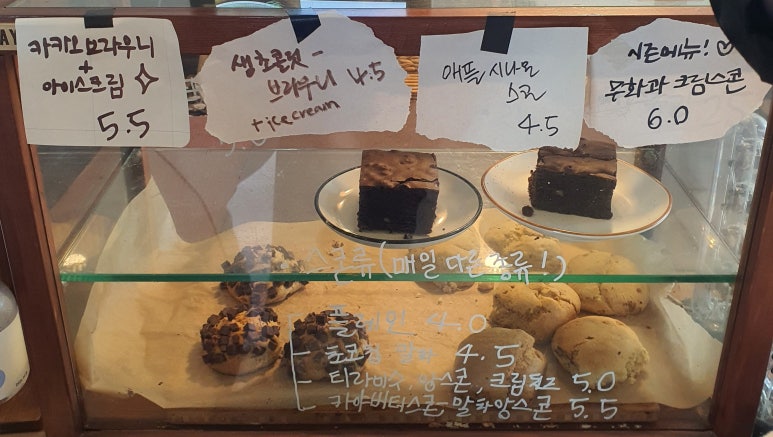 카카오브라우니
+
아이스크림
5.5
생초콜릿
브라우니 4.5
+icecream
애플시나몬
스콘
4.5
시즌메뉴! ♡
무화과 크림스콘
6.0
스콘류(매일 다른 종류!)
- 플레인 4.0
- 초코칩 4.5
- 티라미수, 앙스콘, 크림치즈 5.0
- 카야버터스콘 말차앙스콘 5.5